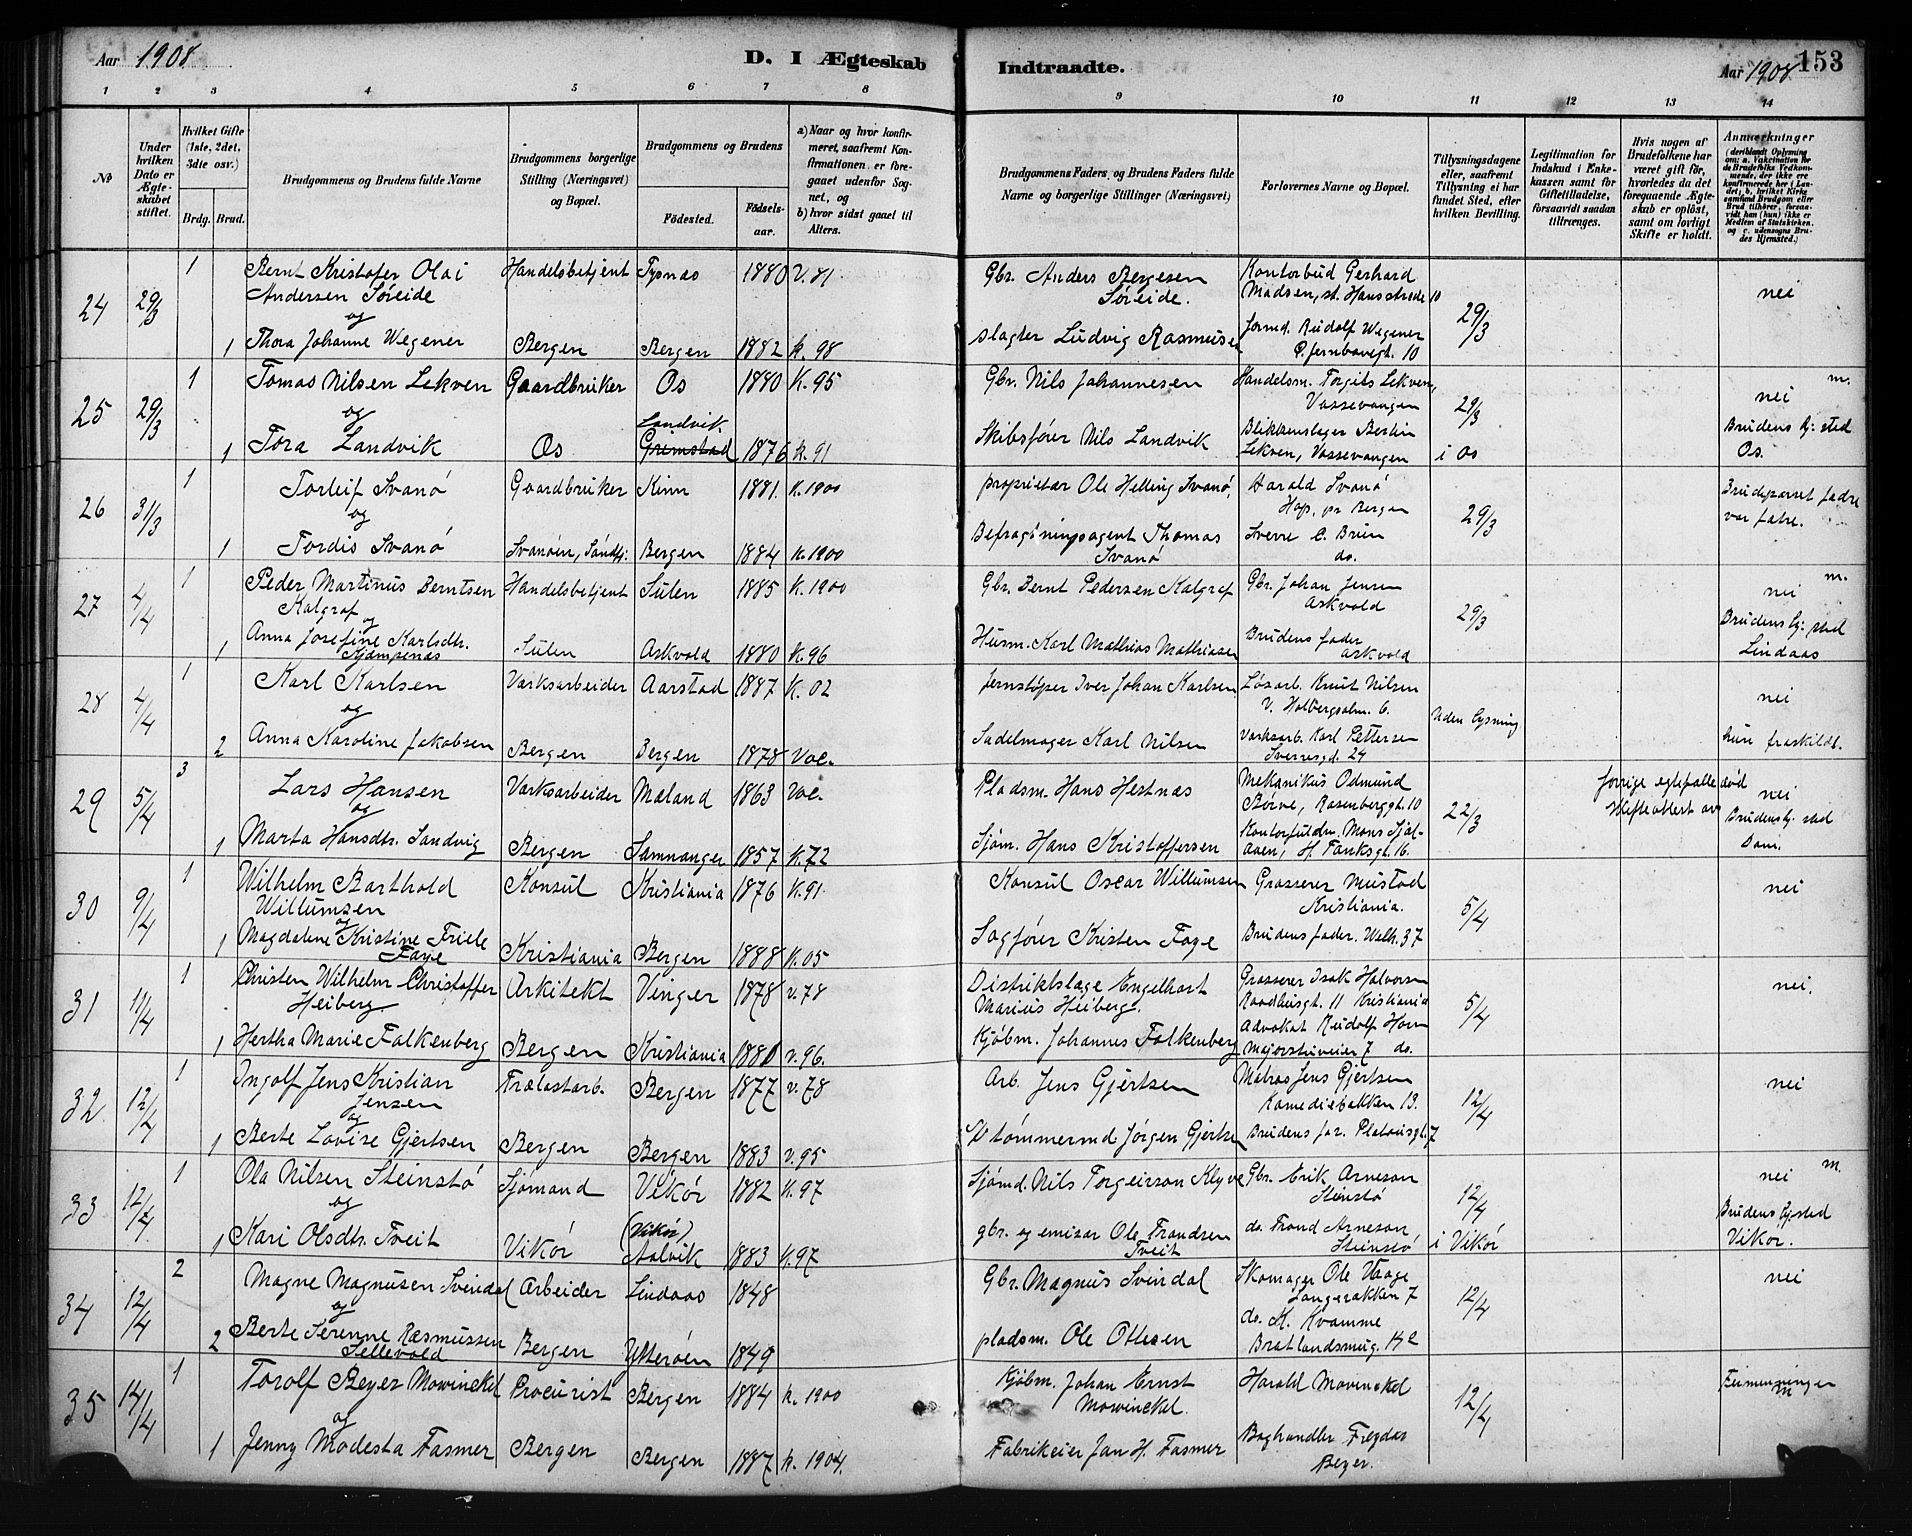 Aar 1908.
D. I Ægteskab
Indtraadte.
Aar 1908.
153
1 2 3 4 5 6 7 8 9 10 11 12 13 14
No
Under hvilken Dato er Ægteskabet stiftet.
Hvilket Gifte (1ste, 2det, 3die osv.)
Brdg. Brud.
Brudgommens og Brudens fulde Navne
Brudgommens borgerlige Stilling (Næringsvei) og Bopæl.
Brudgommens og Brudens
Fødested.
Fødselsaar.
a) Naar og hvor konfirmeret, saafremt Konfirmationen er foregaaet udenfor Sognet, og
b) hvor sidst gaaet til Alters.
Brudgommens Faders og Brudens Faders fulde Navne og borgerlige Stillinger (Næringsvei)
Forlovernes Navne og Bopæl.
Tillysningsdagene eller, saafremt Tillysning ei har fundet Sted, efter hvilken Bevilling.
Legitimation for Indskud i Enkekassen samt for Giftetilladelse, forsaavidt saadan tiltrænges.
Hvis nogen af Brudefolkene har været gift før, hvorledes da det foregaaende Ægteskab er opløst, samt om lovligt Skifte er holdt.
Anmærkninger
(deriblandt Oplysning om: a. Vakcination for de Brudefolks Vedkommende, der ikke ere konfirmerede her i Landet; b. hvilket Kirkesamfund Brudgom eller Brud tilhører, forsaavidt han (hun) ikke er Medlem af Statskirken, og c. udensogns Brudes Hjemsted.)
24 29/3 1 Bernt Kristofer Olai Handelsbetjent Tysnæs 1880 v. 81 Gbr. Anders Børgesen Kontorbud Gerhard
Andersen Søreide Søreide. Madsen, st. Hansstræde 10 29/3 nei
og
1 Thora Johanne Wegener Bergen Bergen 1882 k. 98 slagter Ludvig Rasmusen formd. Rudolf Wegener
10
25 29/3 1 Tomas Nilsen Lekven Gaardbruker Os 1880 K. 95 Gbr. Nils Johannesen Handelsm. Torgils Lekven, m.
og Landvik Vossevangen 29/3 nei
1 Tora Landvik Os Gremstad 1876 k. 91 Skibsfører Nils Landvik Blikkenslager Bertin Brudens hj: sted
Lekven, Vossevangen i Os Os.
26 31/3 1 Torleif Svanö Gaardbruker Kinn 1881. K. 1900 proprietær Ole Helling Svanö, Harald Svanö Brudeparret fædre
og Hop, pr Bergen 29/3 var fætre.
1 Tordis Svanö Svanöen, Söndfj: Bergen 1884 K. 1900 Befragtningsagent Thomas Sverre C. Bruun
Svanö do.
27 4/4 1 Peder Martinus Berntsen Handelsbetjent Sulen 1885 K. 1900 Gbr. Bernt Pedersen Kalgraf Gbr. Johan Jensen m.
Kalgraf Askvold 29/3 nei
og
1 Anna Josefine Karlsdtr. Sulen Askvold 1880 K. 96 Husm. Karl Mathias Mathiasen Brudens fader Brudens hj: sted
Kjempenes Askvold Lindaas
28 4/4 1 Karl Karlsen Værksarbeider Aarstad 1887 K. 02 Jernstøper Iver Johan Karlsen Løsarb. Knut Nilsen nei
og V. Holbergsalm. 6. Uden lysning
2 Anna Karoline Jakobsen Bergen Bergen 1878 Vac. Sadelmager Karl Nilsen Værksarb. Karl Pettersen hun fraskildt.
Sverresgd. 24
29 5/4 3 Lars Hansen Værksarbeider Mæland 1863 Vac. Pladsm. Hans Hestnæs Mekanikus Odmund forrige egtefælle død
og Børve, Rosenberggt. 10 22/3 Skifteattest av nei
1 Marta Hansdtr. Sandvig Bergen Samnanger 1857 K. 72 Sjøm. Hans Kristoffersen Kontorfuldm. Mons Brudens hj: sted
H. Fanksgt. 16. Dom.
30 9/4 1 Wilhelm Barthold Konsul Kristiania 1876 K. 91 Konsul Oscar Willumsen Grosserer Mustad nei
Willumsen Kristiania.
og 5/4
1 Magdalene Kristine Friele Kristiania Bergen 1888 K. 05 Sagfører Kristen Faye Brudens fader. Welh. 37
Faye
31 11/4 1 Christen Wilhelm Christoffer Arkitekt Vinger 1878 v. 78 Distriktslæge Engelhart Grosserer Isak Halvorsen nei.
Heiberg Marius Heiberg. Raadhusgt. 11 Kristiania 5/4
1 Hertha Marie Falkenberg Bergen Kristiania 1881 v. 96. Kjøbm. Johannes Falkenberg Advokat Rudolf Horn
Majorstuveier 7 do.
32 12/4 1 Ingolf Jens Kristian Trælastarb. Bergen 1877 v. 78 Arb. Jens Gjertsen Matros Jens Gjertsen nei
Jensen Komediebakken 13. 12/4
og
1 Berte Lovise Gjertsen Bergen Bergen 1883 v. 95 tømmermd Jörgen Gjertsen Brudens far. 7
33 12/4 1 Ola Nilsen Steinstø Sjømand Vikör 1882 K. 97 Sjömd. Nils Torgeirson Klyve Gbr. Erik Arneson m.
og (Vikör) Steinstø 12/4 nei
1 Kari Olsdtr. Tveit Vikör Aalvik 1883 K. 97 gbr. og emisær Ole Trondsen do. Trond Arneson Brudens hj: sted
Tveit Steinstø i Vikör Vikör.
34 12/4 2 Magne Magnusen Svindal Arbeider Lindaas 1848 Gbr. Magnus Svindal Skomager Ole Vaage nei
og 7 12/4
2 Berte Serenne Rasmussen Bergen Ytterøen 1849 pladsm. Ole Ottesen do. K. Kvamme
Sellevold Bratlandsmug. 142
35 14/4 1 Torolf Beyer Mowinckel Procurist Bergen 1884 k. 1900 Kjøbm. Johan Ernst Harald Movinckel
og Mowinckel. 12/4 m
1 Jenny Modesta Fasmer Bergen Bergen 1887 k. 1904. Fabrikeier Jan H. Fasmer Boghandler
Beyer.